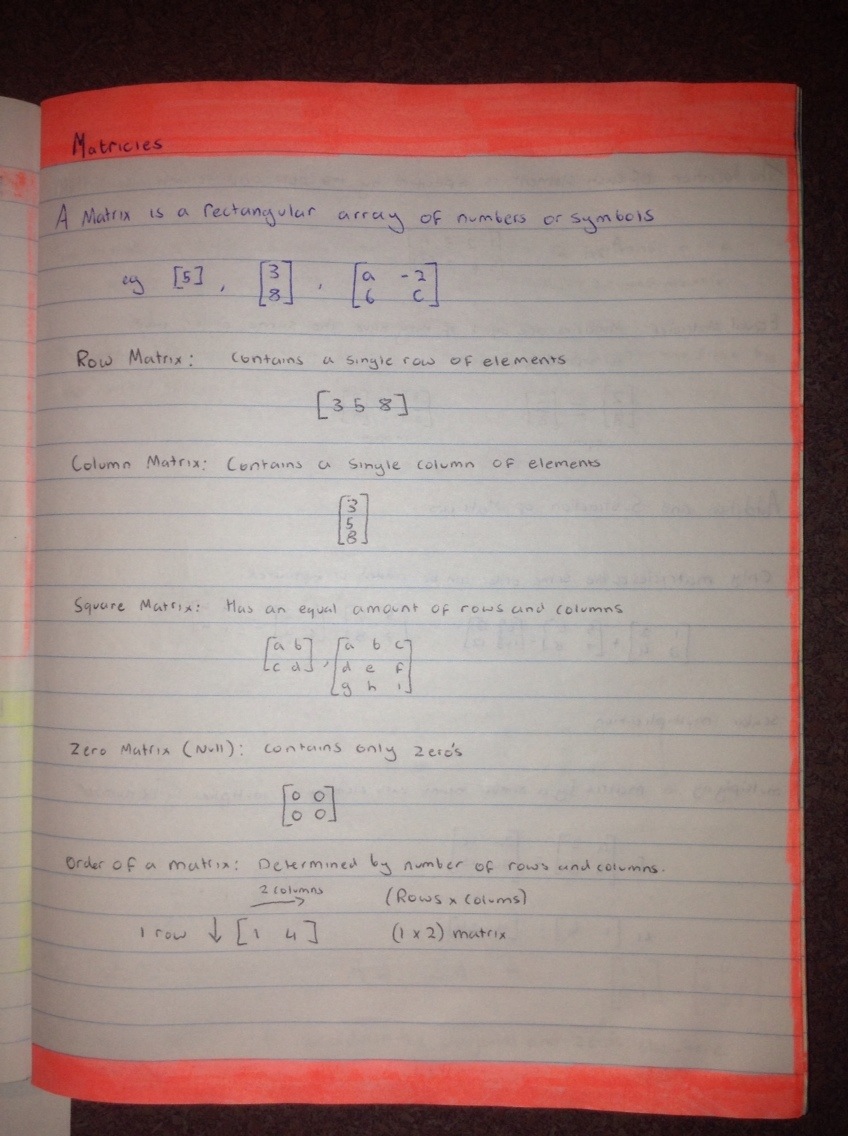 Matricies
A Matrix is a rectangular array of numbers or symbols
eg [5], [3 8], [a -2 6 c]
Row Matrix: Contains a single row of elements
[3 5 8]
Column Matrix: Contains a single column of elements
[3
5
8]
Square Matrix: Has an equal amount of rows and columns
[a b
c d], [a b c
d e f
g h i]
Zero Matrix (Null): contains only zero's
[0 0
0 0]
Order of a matrix: Determined by number of rows and columns.
2 columns (Rows x Colums)
1 row ↓ [1 4] (1 x 2) matrix